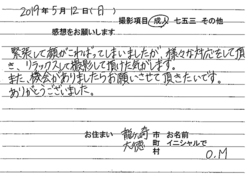 2019年5月12日(日)
撮影項目 成人 七五三 その他
感想をお願いします
緊張して顔がこわばってしまいましたが、様々な対応をして頂
き、リラックスして撮影して頂けた気がします。
また、機会がありましたらお願いさせて頂きたいです。
ありがとうございました。
お住まい 龍ヶ崎 市 お名前
大徳 町 イニシャルで
村 O.M